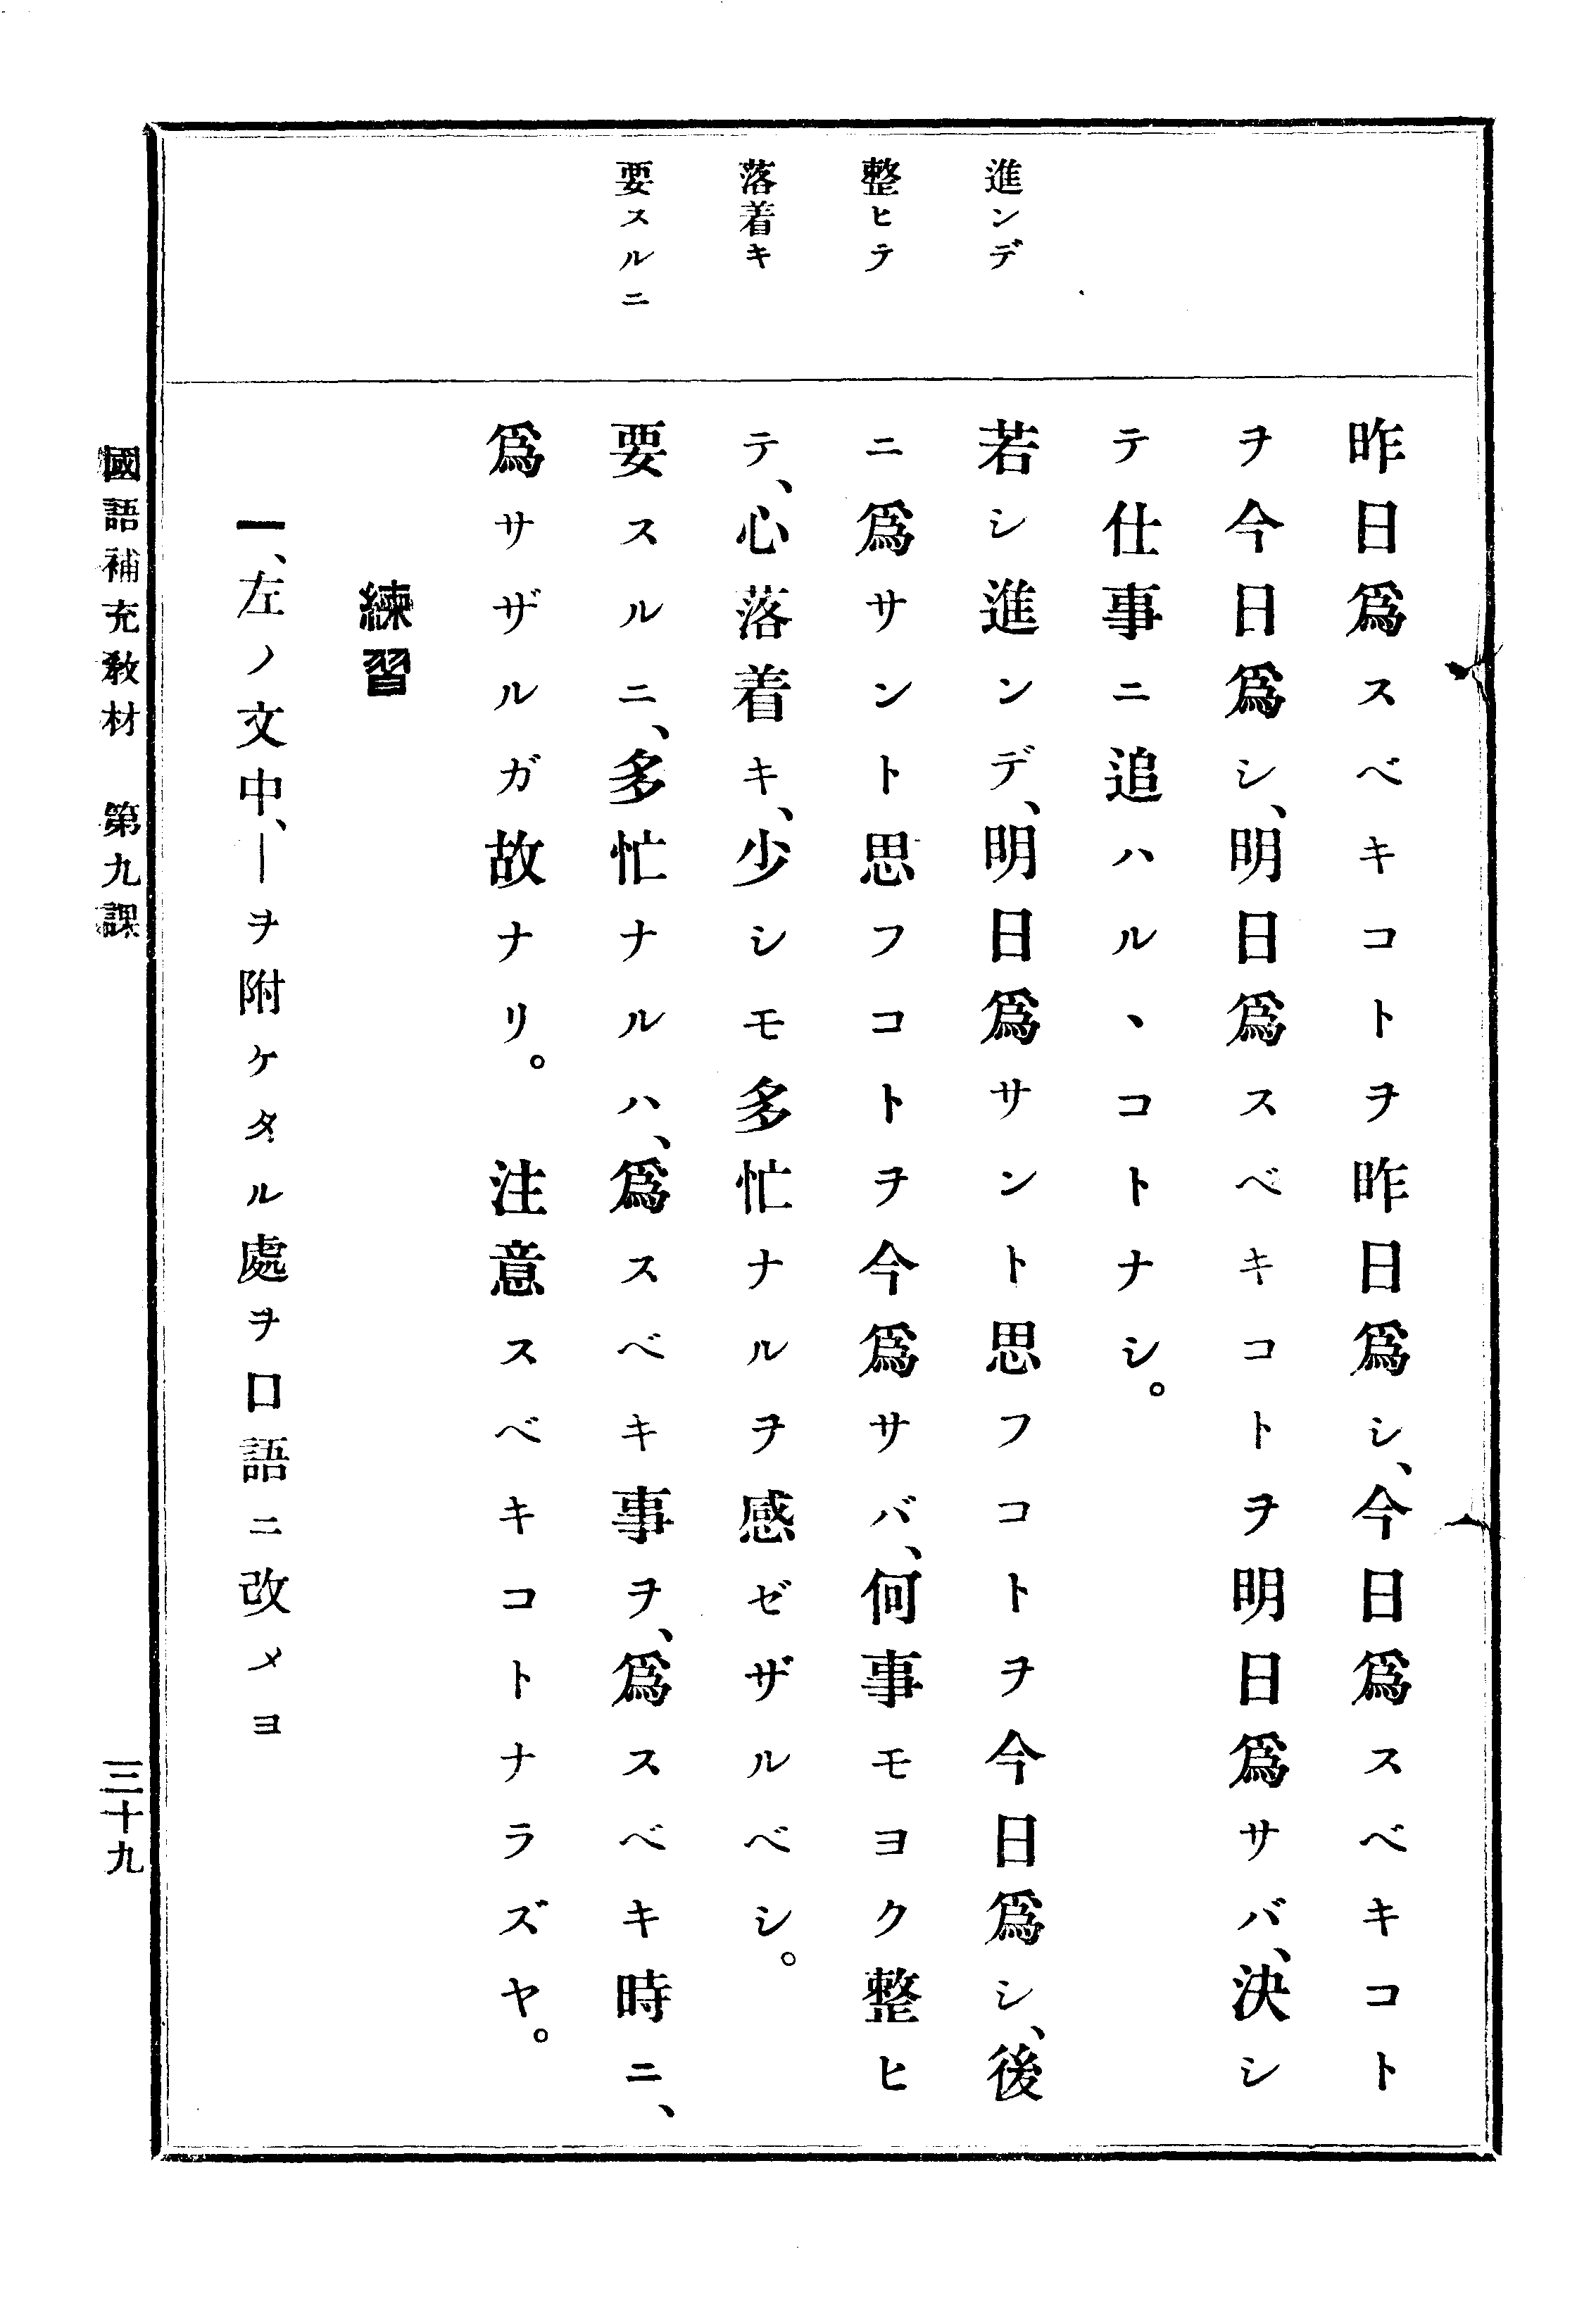 進ンデ
整ヒテ
落着キ
要スルニ
昨日爲スベキコトヲ昨日爲シ、今日爲スベキコト
ヲ今日爲シ、明日爲スベキコトヲ明日爲サバ、決シ
テ仕事ニ追ハルヽコトナシ。
若シ進ンデ、明日爲サント思フコトヲ今日爲シ、後
ニ爲サント思フコトヲ今爲サバ、何事モヨク整ヒ
テ、心落着キ、少シモ多忙ナルヲ感ゼザルベシ。
要スルニ、多忙ナルハ、爲スベキ事ヲ、爲スベキ時ニ、
爲サザルガ故ナリ。　注意スベキコトナラズヤ。
練習
一、左ノ文中、―ヲ附ケタル處ヲ口語ニ改メヨ
國語補充敎材　第九課
三十九